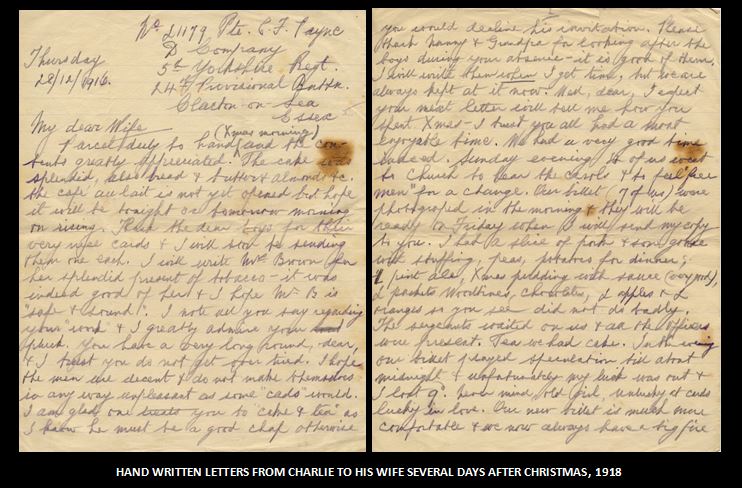 No 21179 Pte. C. F. Payne
D Company
5th Yorkshire Regt.
24th Provisional Battn.
Clacton-on-Sea
Essex
Thursday
28/12/1916.
My dear Wife
(Xmas morning)
Parcel duly to hand and the con
tents greatly appreciated. The cake was
splendid, also bread & butter & almonds &c.
the cafe au lait is not yet opened but hope
it will be tonight or tomorrow morning
on rising. Thank the dear boys for their
very nice cards & I will soon be sending
them one each. I will write Mrs Brown for
her splendid present of tobacco - it was
indeed good of her & I hope Mr B is
"safe & sound". I note all you say regarding
your "work" & I greatly admire your
pluck. You have a very long round, dear,
& I trust you do not get over tired. I hope
the men are decent & do not make themselves
in any way unpleasant as some "cads" would.
I am glad one treats you to "cake & tea" as
I know he must be a good chap otherwise
you would decline his invitation. Please
thank Nanny & Grandpa for looking after the
boys during your absence - it is good of them.
I will write them when I get time, but we are
always kept at it now. Well, dear, I expect
your next letter will tell me how you
spent Xmas - I trust you all had a most
enjoyable time. We had a very good time
indeed. Sunday evening of us went
to Church to hear the carols & to feel "free
men" for a change. Our billet (7 of us) were
photographed in the morning & they will be
ready on Friday when I will send my copy
to you. I had a slice of pork & some goose
with stuffing, peas, potatoes for dinner;
1 pint ale, Xmas pudding with sauce (very good),
2 packets Woodbines, chocolates, 2 apples & 2
oranges so you see did not do badly.
The sergeants waited on us & all the officers
were present. Tea we had cake. In the evening
our billet played speculation till about
midnight & unfortunately my luck was out &
I lost 9d. Never mind, old girl, unlucky at cards
lucky in love. Our new billet is much more
comfortable & we now always have a big fire
HAND WRITTEN LETTERS FROM CHARLIE TO HIS WIFE SEVERAL DAYS AFTER CHRISTMAS, 1918